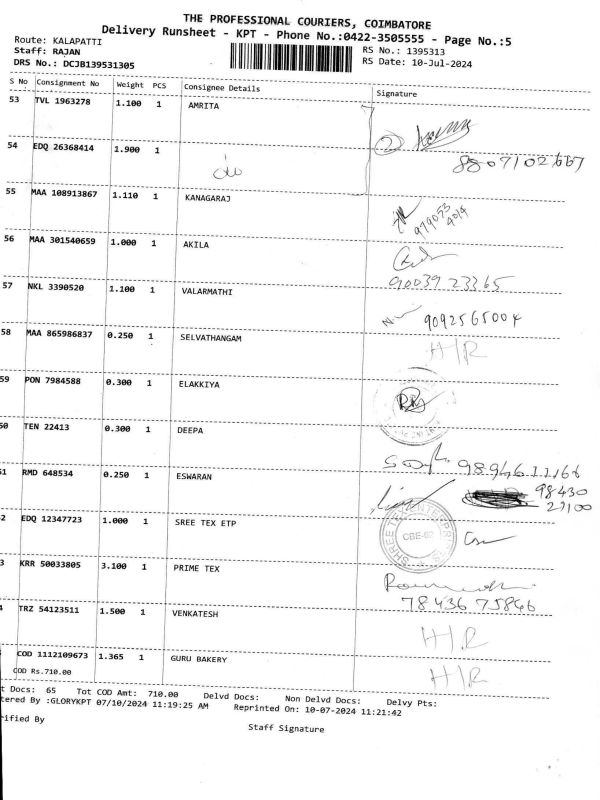 THE PROFESSIONAL COURIERS, COIMBATORE
Delivery Runsheet - KPT - Phone No.:0422-3505555 - Page No.:5
Route: KALAPATTI
RS No.: 1395313
Staff: RAJAN
RS Date: 10-Jul-2024
DRS No.: DCJB139531305
S No Consignment No Weight PCS Consignee Details Signature
53 TVL 1963278 1.100 1 AMRITA
54 EDQ 26368414 1.900 1
8807102667
55 MAA 108913867 1.110 1 KANAGARAJ
979053
4014
56 MAA 301540659 1.000 1 AKILA
90039 23365
57 NKL 3390520 1.100 1 VALARMATHI
9092565004
58 MAA 865986837 0.250 1 SELVATHANGAM
H/R
59 PON 7984588 0.300 1 ELAKKIYA
60 TEN 22413 0.300 1 DEEPA
9894611166
61 RMD 648534 0.250 1 ESWARAN
98430
27100
2 EDQ 12347723 1.000 1 SREE TEX ETP
CBE-62
3 KRR 50033805 3.100 1 PRIME TEX
78436 75846
4 TRZ 54123511 1.500 1 VENKATESH
H/R
COD 1112109673 1.365 1 GURU BAKERY
H/R
COD Rs.710.00
t Docs: 65 Tot COD Amt: 710.00 Delvd Docs: Non Delvd Docs: Delvy Pts:
tered By :GLORYKPT 07/10/2024 11:19:25 AM Reprinted On: 10-07-2024 11:21:42
rified By
Staff Signature